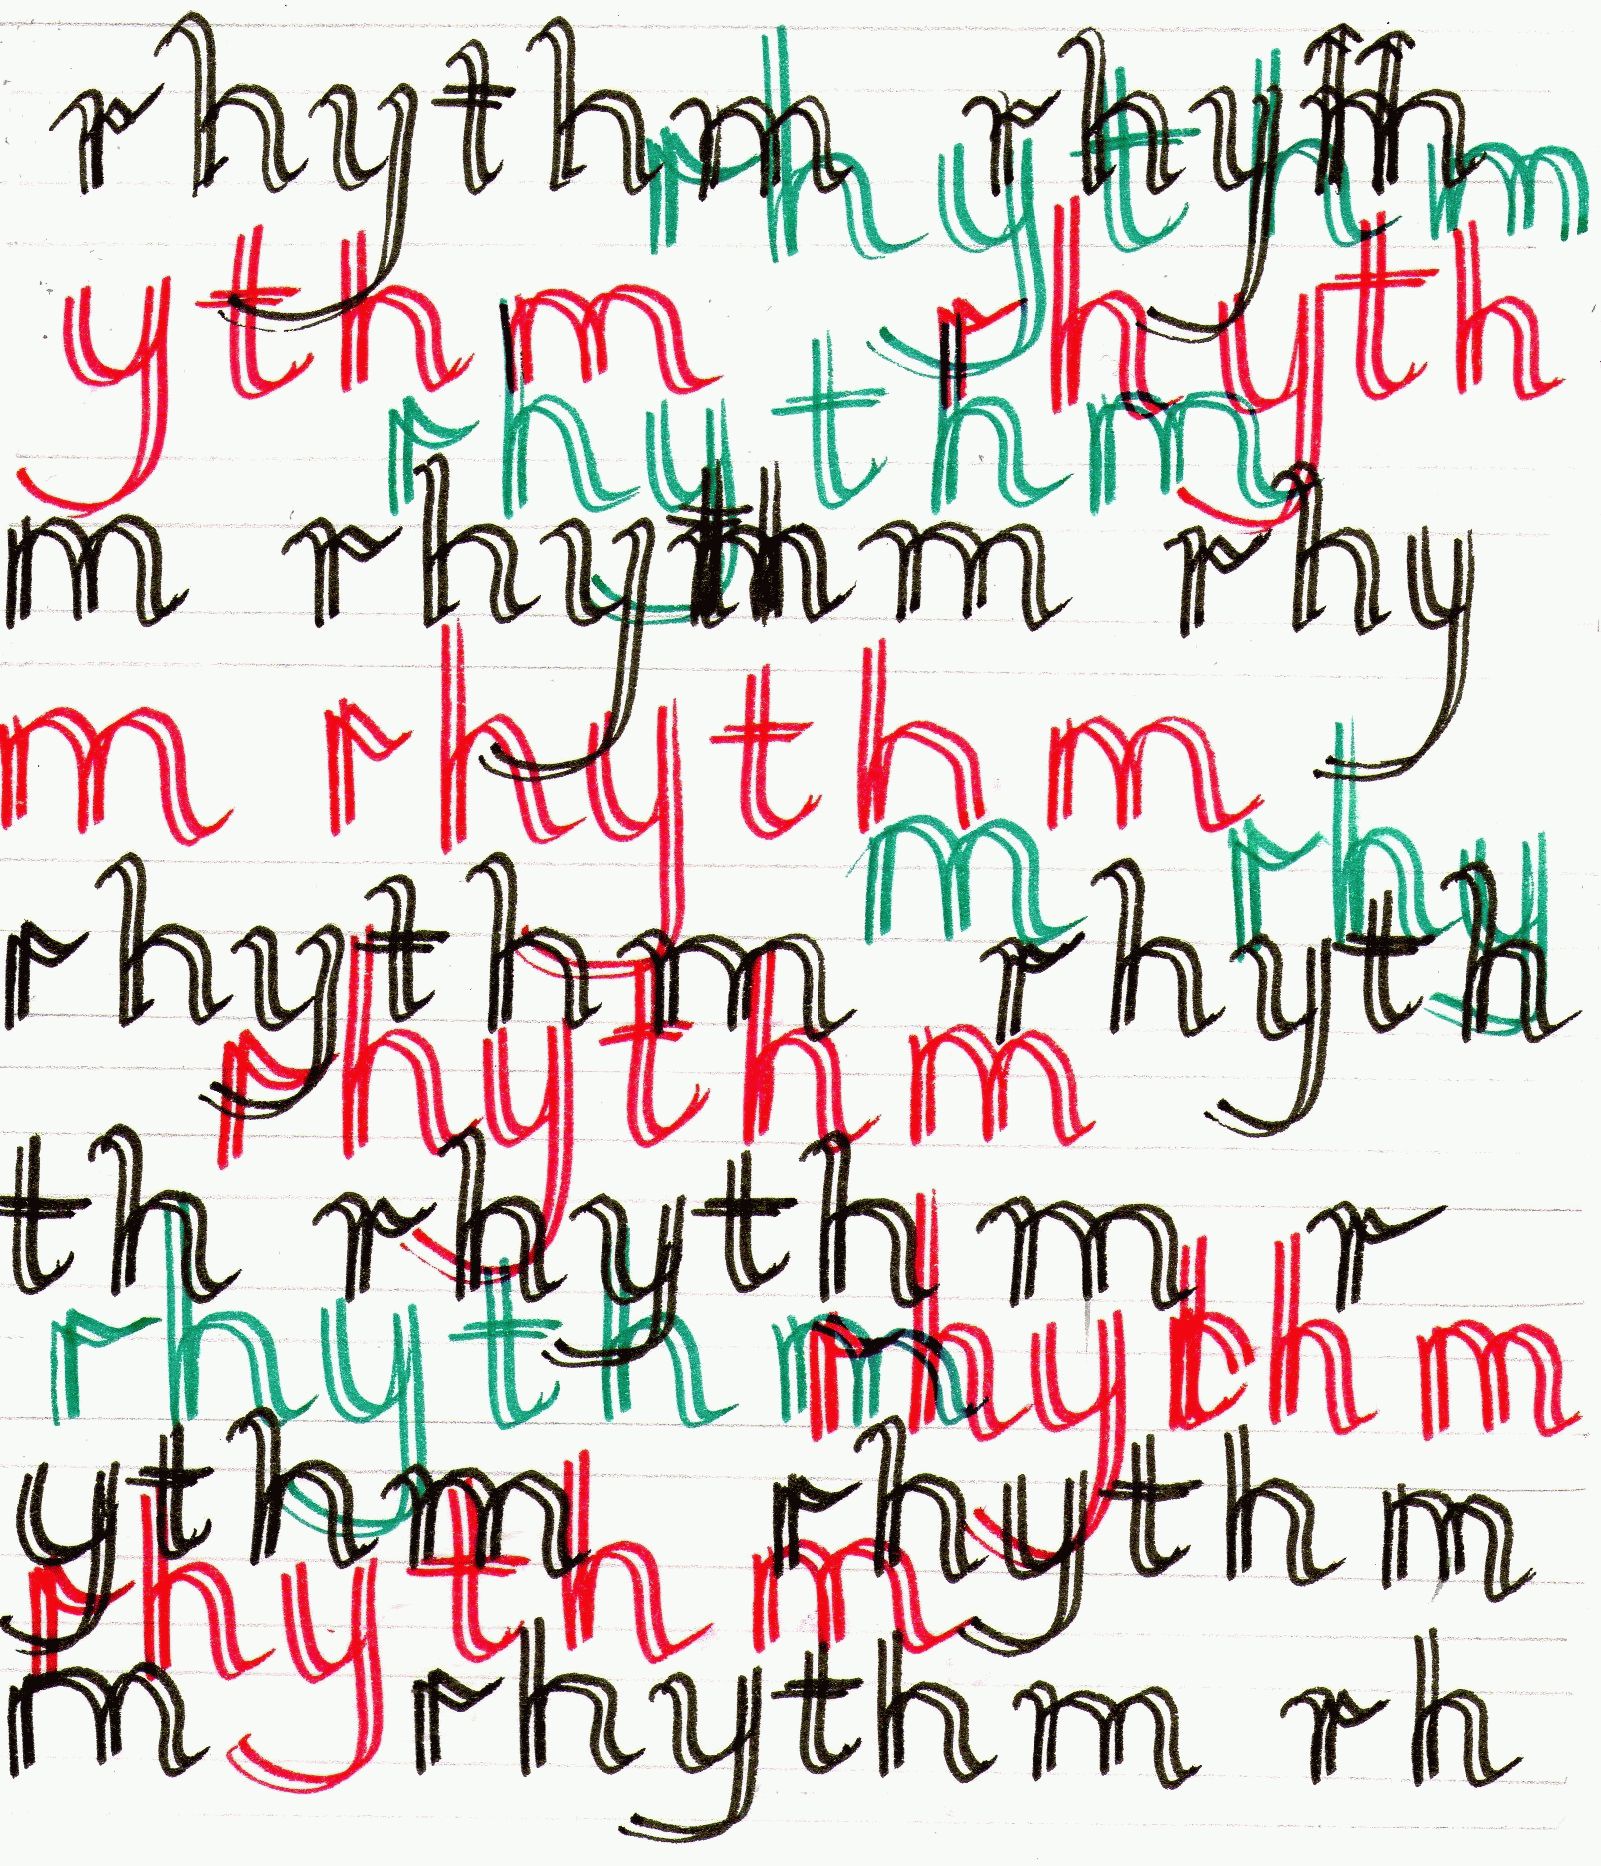 rhythm rhyth
rhythm
ythm rhyth
rhythm
m rhythm rhy
m rhythm
m rhy
rhythm rhyth
rhythm
th rhythm r
rhythm rhythm
ythm rhythm
rhythm
m rhythm rh